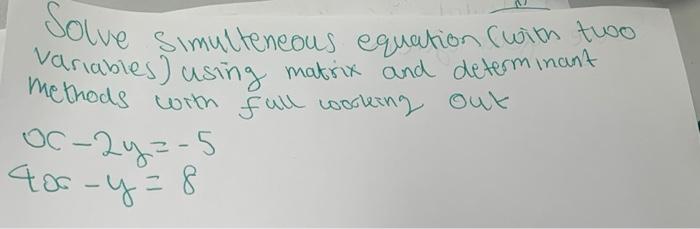 Solve simulteneous equation (with two
variables) using matrix and determinant
methods with full working out
x - 2y = -5
4x - y = 8